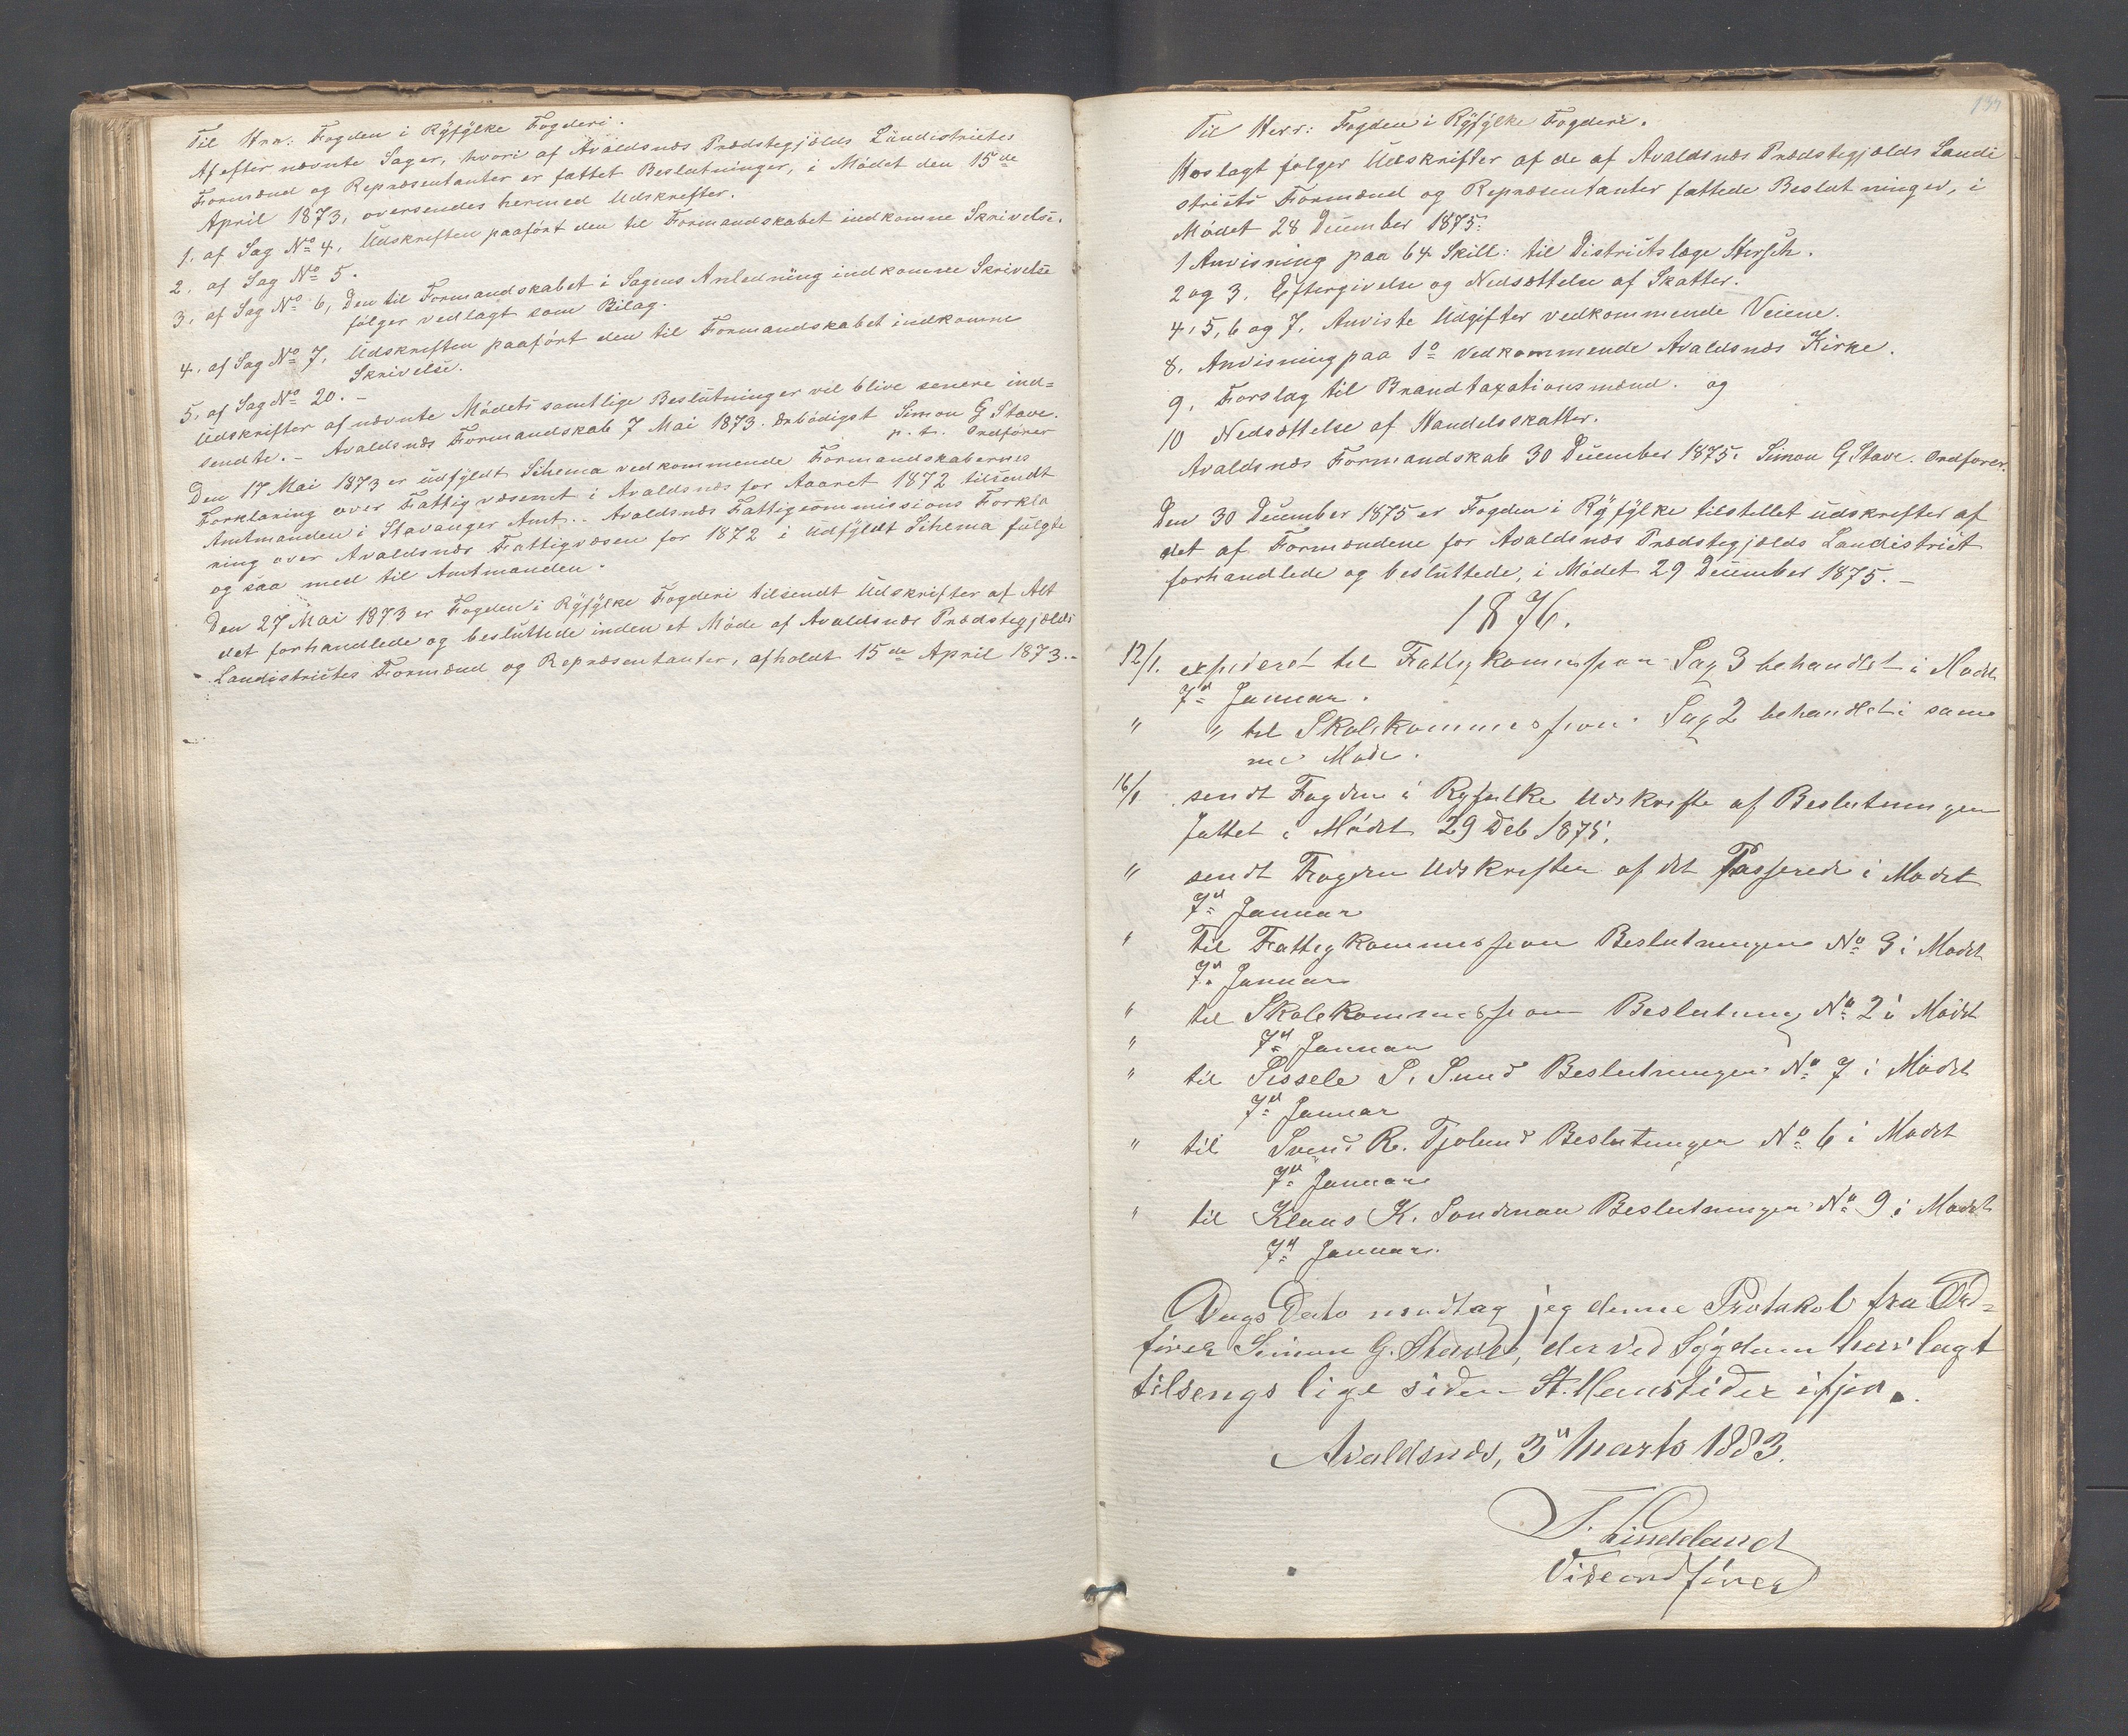 Til Hrr: Fogden i Ryfylke Fogderi.
Af efternævnte Sager, hvori af Avaldsnæs Prædstegjælds Landistrictes
Formænd og Repræsentanter er fattet Beslutninger, i Mødet den 15de
April 1873, oversendes hermed Udskrefter.
1. af Sag No 4, Udskreften paaført den til Formandskabet indkomne Skrivelse.
2. af Sag No 5.
3. af Sag No 6, Den til Formandskabet i Sagens Anledning indkomne Skrivelse
følger vedlagt som Bilag.
4. af Sag No 7. Udskreften paaført den til Formandskabet indkomne
Skrivelse.
5. af Sag No 20. –
Udskrifter af nævnte Mødets samtlige Beslutninger vil blive senere ind=
sendte. – Avaldsnæs Formandskab 7 Mai 1873. ærbødigst Simon G Stave.
p. t. Ordfører
Den 17 Mai 1873 er udfyldt Schema vedkommende Formandskabernes
Forklaring over Fattigvæsenet i Avaldsnæs for Aaaret 1872 tilsendt
Amtmanden i Stavanger Amt. – Avaldsnæs Fattigcommissions Forkla
ning over Avaldsnæs Fattigvæsen for 1872 i udfyldt Schema fulgte
og saa med til Amtmanden.
Den 27 Mai 1873 er Fogden i Ryfylke Fogderi tilsendt Udskrifter af Alt
det forhandlede og besluttede inden et Møde af Avaldsnæs Prædstegjælds
Landistrictes Formænd og Repræsentanter, afholdt 15de April 1873. –
Til Herr: Fogden i Ryfylke Fogderi.
Hoslagt følger Udskrifter af de af Avaldsnæs Prædstegjælds Landi
stricts Formænd og Repræsentanter fattede Beslutninger, i
Mødet 28 December 1875:
1 Anvisning paa 64 Skill: til Districtslæge Hersch.
2 og 3. Eftergivelse og Nedsættelse af Skatter.
4, 5, 6 og 7. Anviste Udgifter vedkommende Veiene.
8. Anvisning paa 1o vedkommende Avaldsnæs Kirke.
9. Forslag til Brandtaxationsmænd. og
10 Nedsættelse af Handelsskatter.
Avaldsnæs Formandskab 30 December 1875. Simon G Stave. Ordfører.
Den 30 December 1875 er Fogden i Ryfylke tilstellet udskrefter af
det af Formændene for Avaldsnæs Prædstegjælds Landistrict
forhandlede og besluttede, i Mødet 29 December 1875. –
1876.
12/1. expederet til Fattigkommission Sag 3 behandlet i Møde
7d Januar.
" " til Skolekommission Sag 2 behandlet i sam
me Møde.
16/1 sendt Fogden i Ryfylke Udskrifte af Beslutningen
fattet i Mødet 29 Deb 1875.
" sendt Fogden Udskreften af det Passerede i Mødet
7d Januar
" Til Fattigkommission Beslutningen No 3 i Mødet
7d Januar
" til Skolekommission Beslutning No 2 i Mødet
" 7d Januar
" til Sissele S. Sund Beslutningen No 7 i Mødet
7d Januar
" til Svend R. Beslutningen No 6 i Mødet
7d Januar
" til Klaus K. Beslutningen No 9 i Mødet
7d Januar.
Dags Dato modtag jeg denne Protokol fra Ord=
fører Simon G. Stave, der ved Sygdom har lagt
tilsengs lige siden St. Hanstider ifjor.
Avaldsnæs, 3d Marts 1883.
T. Lindeland
Viseordfører